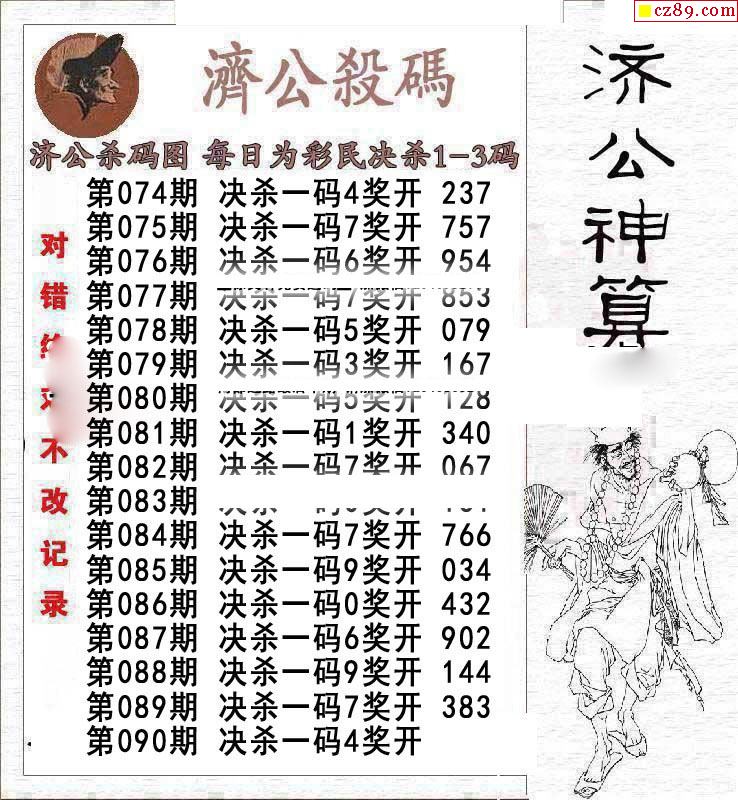 cz89.com
濟公殺碼
济公杀码图 每日为彩民决杀1-3码
第074期 决杀一码4奖开 237
第075期 决杀一码7奖开 757
第076期 决杀一码6奖开 954
第077期 决杀一码7奖开 853
第078期 决杀一码5奖开 079
第079期 决杀一码3奖开 167
第080期 决杀一码5奖开 128
第081期 决杀一码1奖开 340
第082期 决杀一码7奖开 067
第083期
第084期 决杀一码7奖开 766
第085期 决杀一码9奖开 034
第086期 决杀一码0奖开 432
第087期 决杀一码6奖开 902
第088期 决杀一码9奖开 144
第089期 决杀一码7奖开 383
第090期 决杀一码4奖开
对错绝对不改记录
济公神算